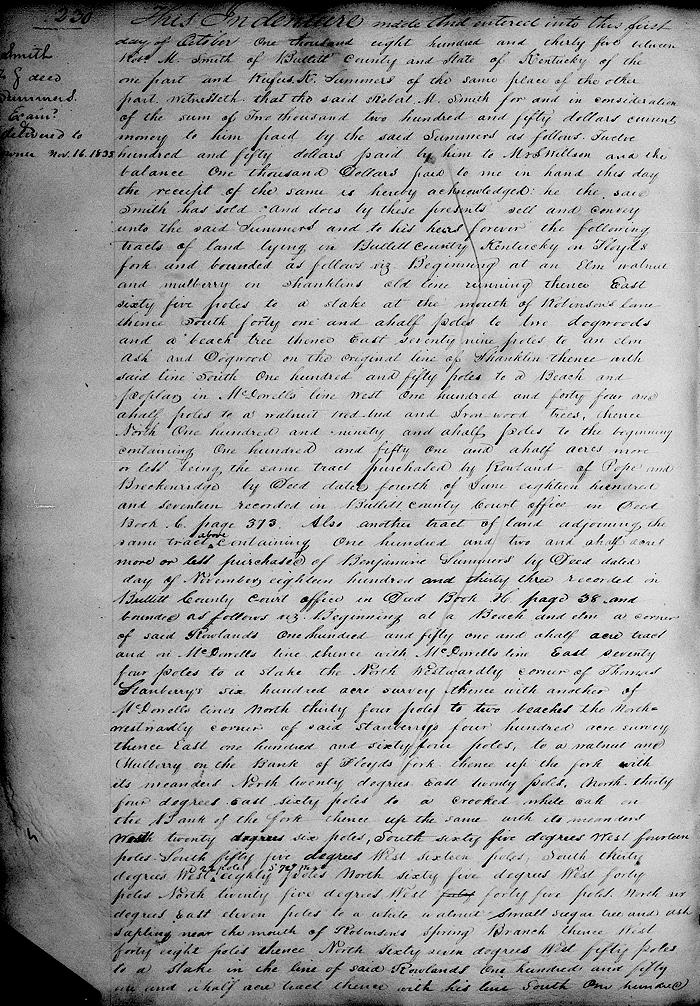 230
This Indenture made and entered into this first
day of October One thousand eight hundred and thirty five between
Robt M. Smith of Bullitt County and State of Kentucky of the
one part and Rufus K. Summers of the same place of the other
part. Witnesseth that the said Robert M. Smith for and in consideration
of the sum of Two thousand two hundred and fifty dollars current
money to him paid by the said Summers as follows. Twelve
hundred and fifty dollars paid by him to Mr Willson and the
balance One thousand Dollars paid to me in hand this day
the receipt of the same is hereby acknowledged: he the said
Smith has sold and does by these presents sell and convey
unto the said Summers and to his heirs forever the following
tracts of land lying in Bullitt County Kentucky on Floyds
fork and bounded as follows viz. Beginning at an Elm walnut
and mulberry on Shanklins old line running thence East
sixty five poles to a stake at the mouth of Robinsons lane
thence South forty one and ahalf poles to two dogwoods
and a beach tree thence East seventy nine poles to an elm
Ash and Dogwood on the original line of Shanklin thence with
said line South One hundred and fifty poles to a Beach and
poplar in McDowells line West One hundred and forty four and
ahalf poles to a walnut red-bud and Iron-wood trees, thence
North One hundred and ninety and ahalf poles to the beginning
containing One hundred and fifty one and ahalf acres more
or less being the same tract purchased by Rowland of Pope and
Breckenridge by Deed dated fourth of June eighteen hundred
and seventeen recorded in Bullitt County Court office in Deed
Book C. page 373. Also another tract of land adjoining the
same tract above containing One hundred and two and ahalf acres
more or less purchased of Benjamine Summers by Deed dated
day of November eighteen hundred and thirty three recorded in
Bullitt County Court office in Deed Book H. page 38 and
bounded as follows viz. Beginning at a Beach and elm a corner
of said Rowlands One hundred and fifty one and ahalf acre tract
and on McDowells line thence with McDowells line East seventy
four poles to a stake the North Westwardly corner of Thomas
Stanberry's six hundred acre survey thence with another of
McDowells lines North thirty four poles to two beaches the North-
westwardly corner of said Stanberrys four hundred acre survey
thence East one hundred and sixty four poles, to a walnut and
Mulberry on the Bank of Floyds fork thence up the fork with
its meanders North twenty degrees East twenty poles, North thirty
four degrees East sixty poles to a crooked white oak on
the Bank of the fork thence up the same with its meanders
North twenty degrees six poles, South sixty five degrees West fourteen
poles South fifty five degrees West sixteen poles, South thirty
degrees West eighty poles North sixty five degrees West forty
poles North twenty five degrees West forty five poles North six
degrees East eleven poles to a white walnut Small sugar tree and ash
sapling near the mouth of Robinsons Spring Branch thence West
forty eight poles thence North sixty seven degrees West fifty poles
to a stake in the line of said Rowlands One hundred and fifty
one and ahalf acre tract thence with his line South One hundred
Smith
To } deed
Summers.
Examd
&
delivered to
owner Nov. 16. 1835